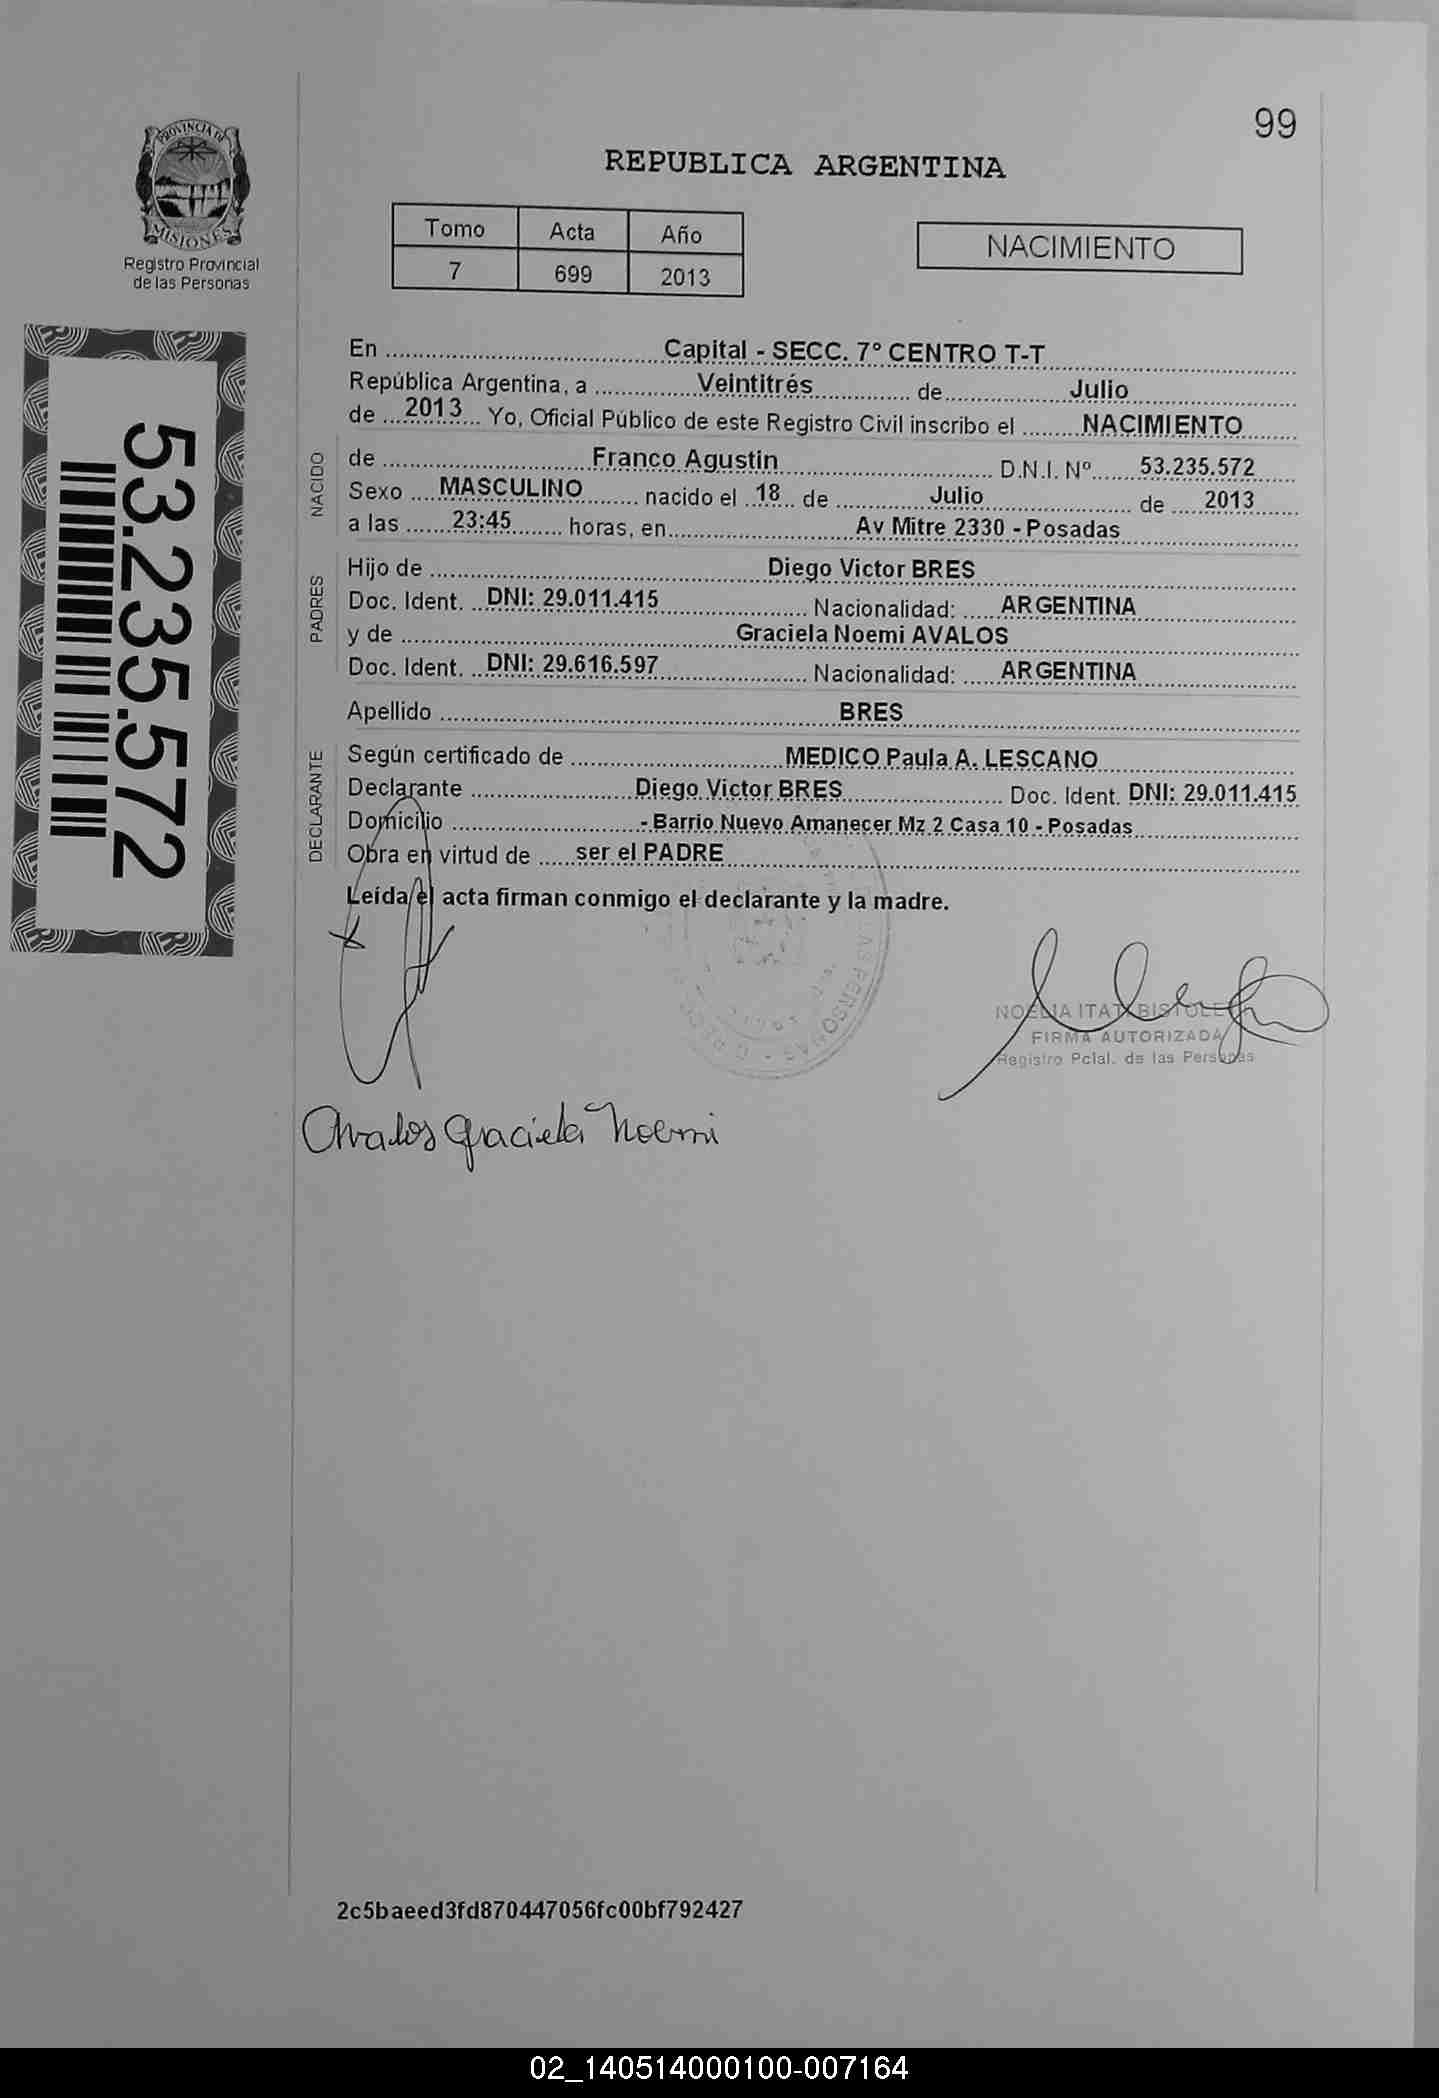 99
PROVINCIA DE
MISIONES
Registro Provincial
de las Personas
REPUBLICA ARGENTINA
Tomo Acta Año
7 699 2013
NACIMIENTO
53.235.572
En Capital - SECC. 7° CENTRO T-T
República Argentina, a Veintitrés de Julio
de 2013 Yo, Oficial Público de este Registro Civil inscribo el NACIMIENTO
NACIDO
de Franco Agustin D.N.I. Nº 53.235.572
Sexo MASCULINO nacido el 18 de Julio de 2013
a las 23:45 horas, en Av Mitre 2330 - Posadas
PADRES
Hijo de Diego Victor BRES
Doc. Ident. DNI: 29.011.415 Nacionalidad: ARGENTINA
y de Graciela Noemi AVALOS
Doc. Ident. DNI: 29.616.597 Nacionalidad: ARGENTINA
Apellido BRES
DECLARANTE
Según certificado de MEDICO Paula A. LESCANO
Declarante Diego Victor BRES Doc. Ident. DNI: 29.011.415
Domicilio - Barrio Nuevo Amanecer Mz 2 Casa 10 - Posadas
Obra en virtud de ser el PADRE
Leída el acta firman conmigo el declarante y la madre.
LAS PERSONAS
NOELIA ITATI
FIRMA AUTORIZADA
Registro Pcial. de las Personas
Avalos Graciela Noemi
2c5baeed3fd870447056fc00bf792427
02_140514000100-007164